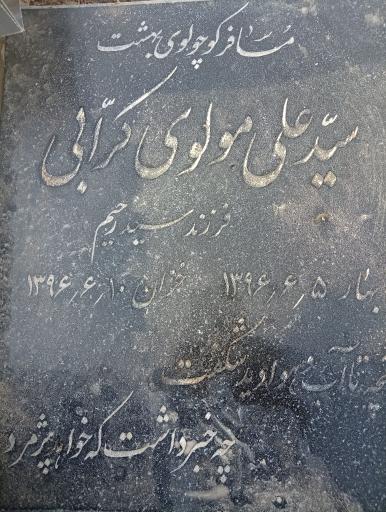 مسافر کوچولوی بهشت
سیّد علی مولوی کرّابی
فرزند سید رحیم
بهار ۵/۶/۱۳۹۶ خزان ۱۰/۶/۱۳۹۶
غنچه تا آب می دادید شکفت
چه خبر داشت که خواهد پژمرد